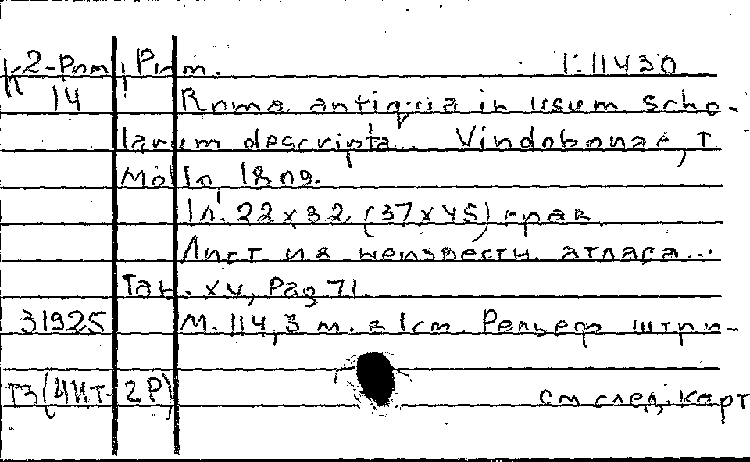 К2-Рим Рим. 1:11430
14 Roma antiqua in usum scho-
larum descripta. Vindobonae, T.
Mollo, 1809.
1 л. 22x32 (37x45) грав.
Лист из неизвестн. атласа...
Tab. XV, Pag 71.
31925 М. 114,3 м. в 1 см. Рельеф штри-
ТЗ(ЧИТ-2Р) см след. карт